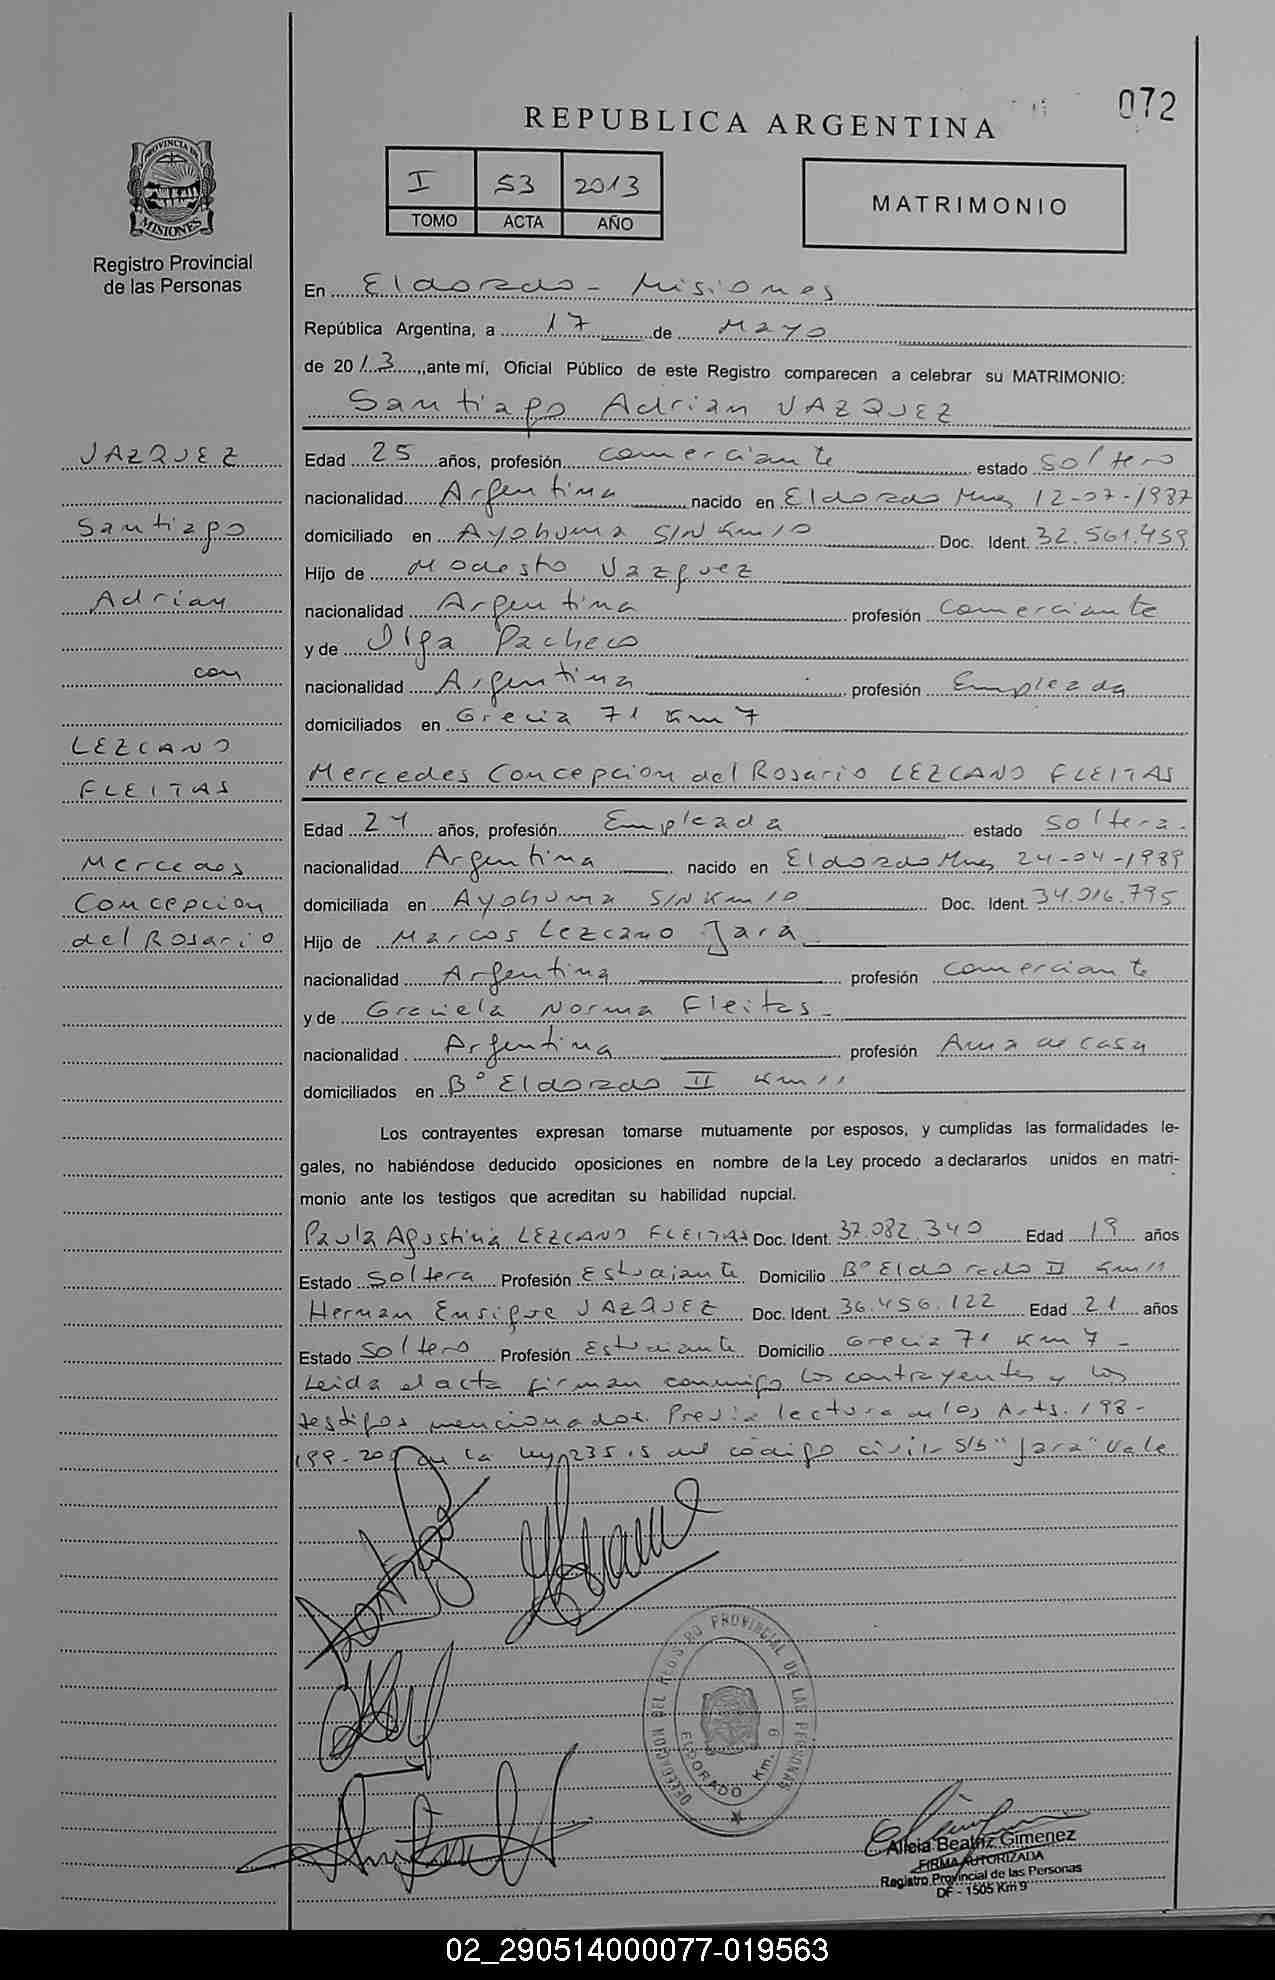 072
REPUBLICA ARGENTINA
PROVINCIA DE
MISIONES
Registro Provincial
de las Personas
I 53 2013
TOMO ACTA AÑO
MATRIMONIO
En Eldorado - Misiones
República Argentina, a 17 de Mayo
de 2013, ante mí, Oficial Público de este Registro comparecen a celebrar su MATRIMONIO:
Santiago Adrian VAZQUEZ
VAZQUEZ
Santiago
Adrian
con
LEZCANO
FLEITAS
Mercedes
Concepcion
del Rosario
Edad 25 años, profesión comerciante estado soltero
nacionalidad Argentina nacido en Eldorado Mnes 12-07-1987
domiciliado en Ayohuma S/N Km 10 Doc. Ident. 32.561.459
Hijo de Modesto Vazquez
nacionalidad Argentina profesión comerciante
y de Olga Pacheco
nacionalidad Argentina profesión Empleada
domiciliados en Grecia 71 Km 7
Mercedes Concepcion del Rosario LEZCANO FLEITAS
Edad 24 años, profesión Empleada estado soltera.
nacionalidad Argentina nacido en Eldorado Mnes 24-04-1989
domiciliada en Ayohuma S/N Km 10 Doc. Ident. 34.016.795
Hijo de Marcos Lezcano Jara
nacionalidad Argentina profesión comerciante
y de Graciela Norma Fleitas -
nacionalidad Argentina profesión Ama de casa
domiciliados en Bº Eldorado II Km 11
Los contrayentes expresan tomarse mutuamente por esposos, y cumplidas las formalidades le-
gales, no habiéndose deducido oposiciones en nombre de la Ley procedo a declararlos unidos en matri-
monio ante los testigos que acreditan su habilidad nupcial.
Paula Agustina LEZCANO FLEITAS Doc. Ident. 37.082.340 Edad 19 años
Estado Soltera Profesión Estudiante Domicilio Bº Eldorado II Km 11
Hernan Enrique VAZQUEZ Doc. Ident. 36.456.122 Edad 21 años
Estado Soltero Profesión Estudiante Domicilio Grecia 71 Km 7 -
Leida el acta firman conmigo los contrayentes y los
testigos mencionados. Previa lectura de los Arts. 198-
199-200 de la ley 23515 del código civil- S/b "Jara" Vale
DELEGACION DEL REGISTRO PROVINCIAL DE LAS PERSONAS
ELDORADO Km. 6
Alicia Beatriz Gimenez
FIRMA AUTORIZADA
Registro Provincial de las Personas
DF - 1505 Km 9
02_290514000077-019563